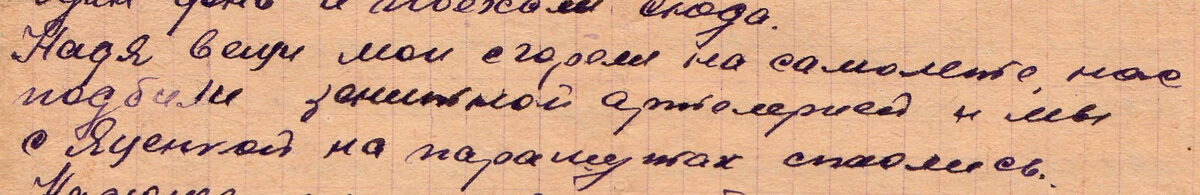 один день и поехали сюда.
Надя вещи мои сгорели на самолете, нас
подбили зенитной артелерией и мы
с Яценкой на парашутах спаслись.